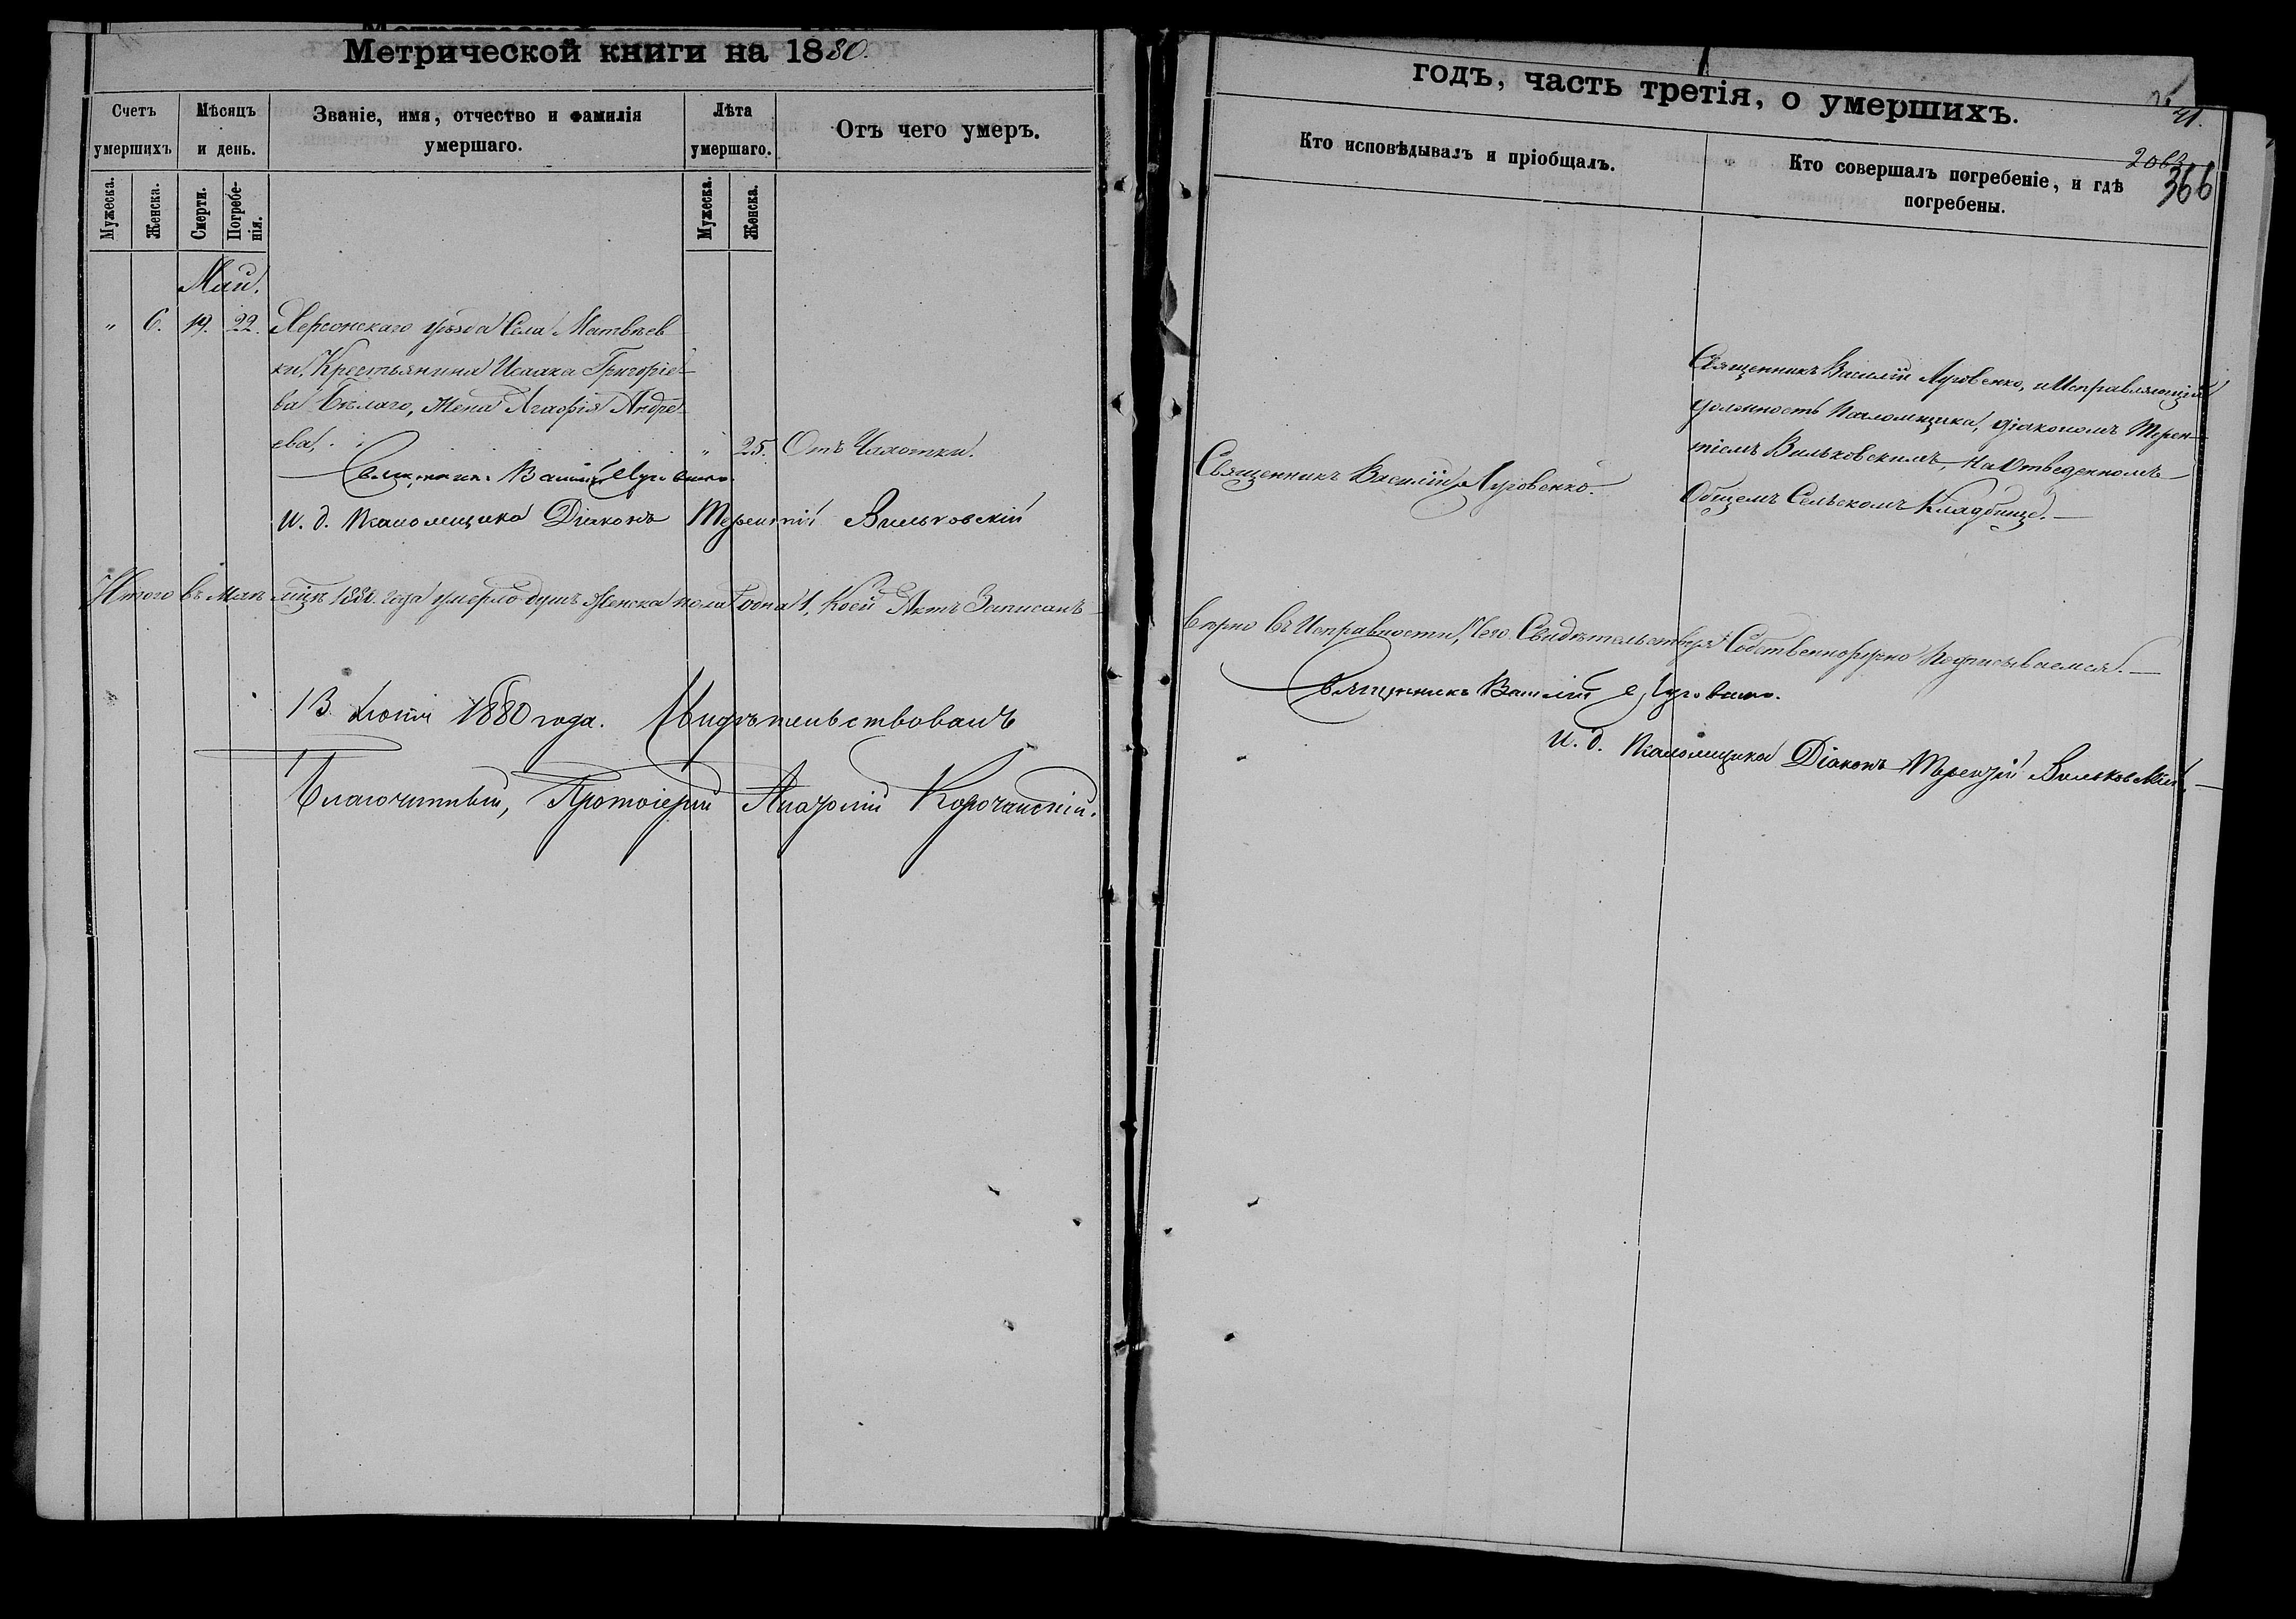 Метрической книги на 1880.
Счетъ умершихъ
Мѣсяцъ и день.
Званіе, имя, отчество и фамилія умершаго.
Лѣта умершаго.
Отъ чего умеръ.
Мужеска.
Женска.
Смерти.
Погребенія.
Мужеска.
Женска.
Май.
" 6. 19. 22. Херсонскаго уѣзда Села Матвѣев
ки, Крестьянина Исаака Григоріе-
ва Бѣлаго, Жена Агафія Андре-
ева, " 25. Отъ Чахотки.
Священникъ Василій Луговенко.
И. д. Псаломщика Діаконъ Терентій Вильковскій
Итого въ Маѣ мцѣ 1880. года умерло душъ Женска пола одна 1, Коей Актъ Записанъ
13 Іюня 1880 года. Свидѣтельствовалъ
Благочинный, Протоіерей Анатолій Корочанскій.
годъ, часть третія, о умершихъ.
41.
366
Кто исповѣдывалъ и пріобщалъ.
Кто совершалъ погребеніе, и гдѣ погребены.
Священникъ Василій Луговенко.
Священникъ Василій Луговенко, и Исправляющій
должность Псаломщика, діакономъ Терен-
тіемъ Вильковскимъ, На Отведенномъ
Общемъ Сельскомъ Кладбищѣ.—
вѣрно въ Исправности, Чего Свидѣтельствуя Собственноручно Подписываемся.—
Священникъ Василій Луговенко.
И. д. Псаломщика Діаконъ Терентій Вильковскій.—